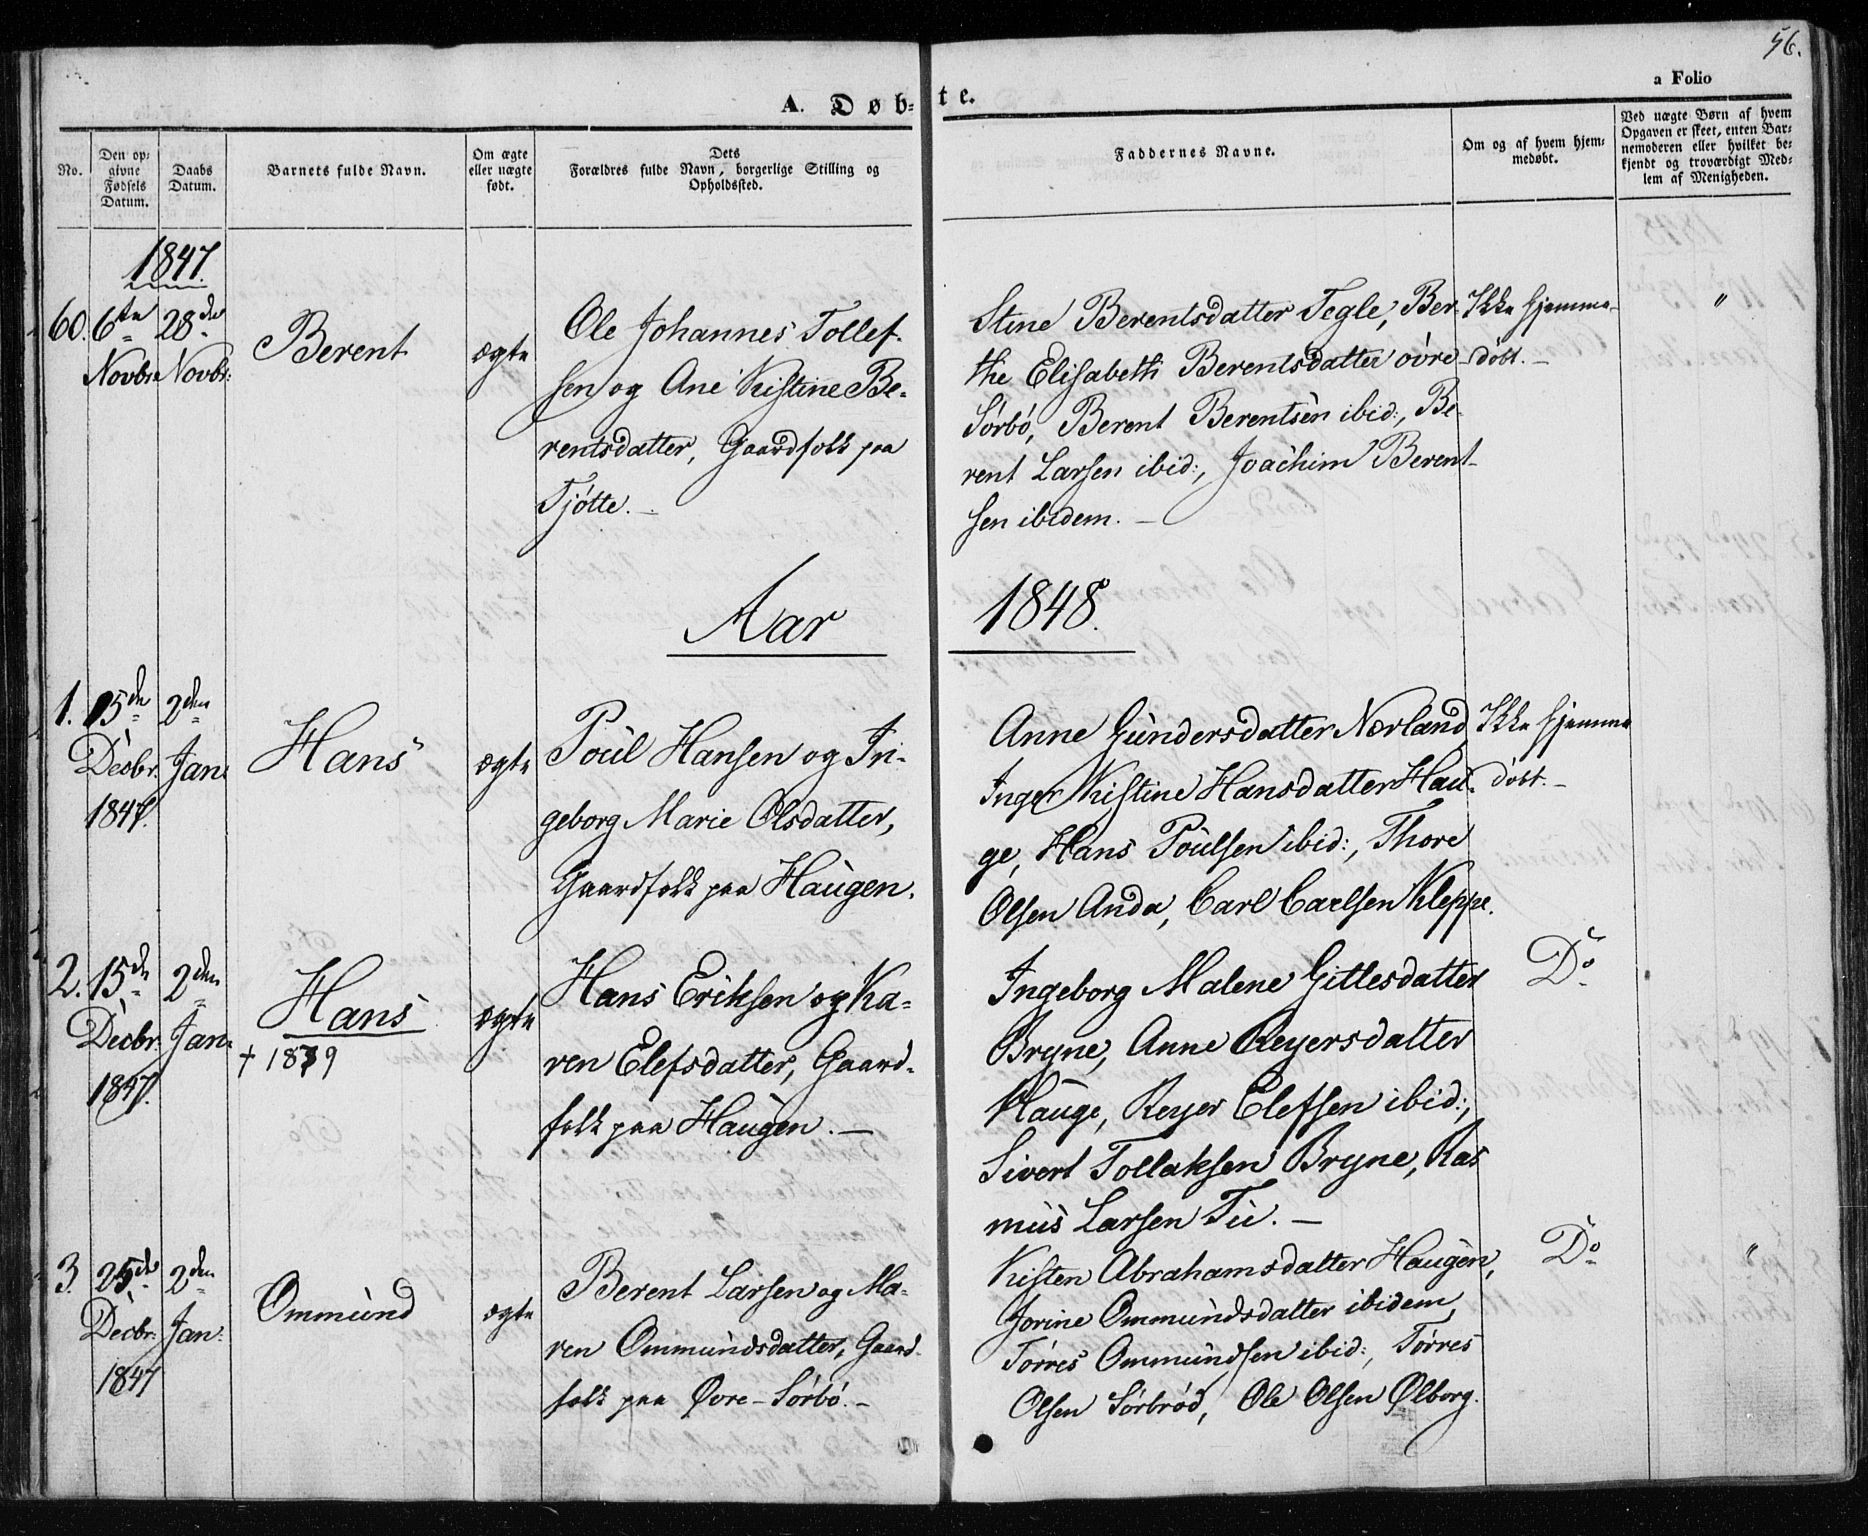 56.
a Folio
A. Døbte.
No.
Den op-
givne
Fødsels
Datum.
Daabs
Datum.
Barnets fulde Navn.
Om ægte
eller uægte
født.
Dets
Forældres fulde Navn, borgerlige Stilling og
Opholdssted.
Faddernes Navne.
Om og af hvem hjem-
medøbt.
Ved uægte Børn af hvem
Opgaven er skeet, enten Bar-
nemoderen eller hvilket be-
kjendt og troværdigt Med-
lem af Menigheden.
1847.
60.
6te
Novbr:
28de
Novbr:
Berent
ægte
Ole Johannes Tollef-
sen og Ane Kistine Be-
rentsdatter, Gaardfolk paa
Tjøtte. -
Stine Berentsdatter Tegle, Ber-
the Elisabeth Berentsdatter øvre
Sørbø, Berent Berentsen ibid:, Be-
rent Larsen ibid:, Joachim Berent-
sen ibidem. -
Ikke hjemme-
døbt. -
"
Aar 1848.
1.
15de
Decbr:
1847.
2den
Jan:
Hans
ægte
Poul Hansen og In-
geborg Marie Olsdatter,
Gaardfolk paa Haugen.
Anne Gundersdatter Nærland,
Inger Kistine Hansdatter Hau-
ge, Hans Poulsen ibid:, Thore
Olsen Anda, Carl Carlsen Kleppe.
Ikke hjemme
døbt. -
2.
15de
Decbr:
1847.
2den
Jan:
Hans
+ 1879
ægte
Hans Eriksen og Ka-
ren Elefsdatter, Gaard-
folk paa Haugen. -
Ingeborg Malene Gitlesdatter
Bryne, Anne Reyersdatter
Hauge, Reyer Elefsen ibid:,
Sivert Tollaksen Bryne, Ras
mus Larsen Tu. -
Do
3.
25de
Decbr:
1847
2den
Jan:
Ommund
ægte
Berent Larsen og Ma-
ren Ommundsdatter, Gaard-
folk paa Øvre-Sørbø. -
Kisten Abrahamsdatter Haugen,
Jorine Ommundsdatter ibidem,
Tørres Ommundsen ibid:, Tørres
Olsen Sørbrød, Ole Olsen Ølborg.
Do
"